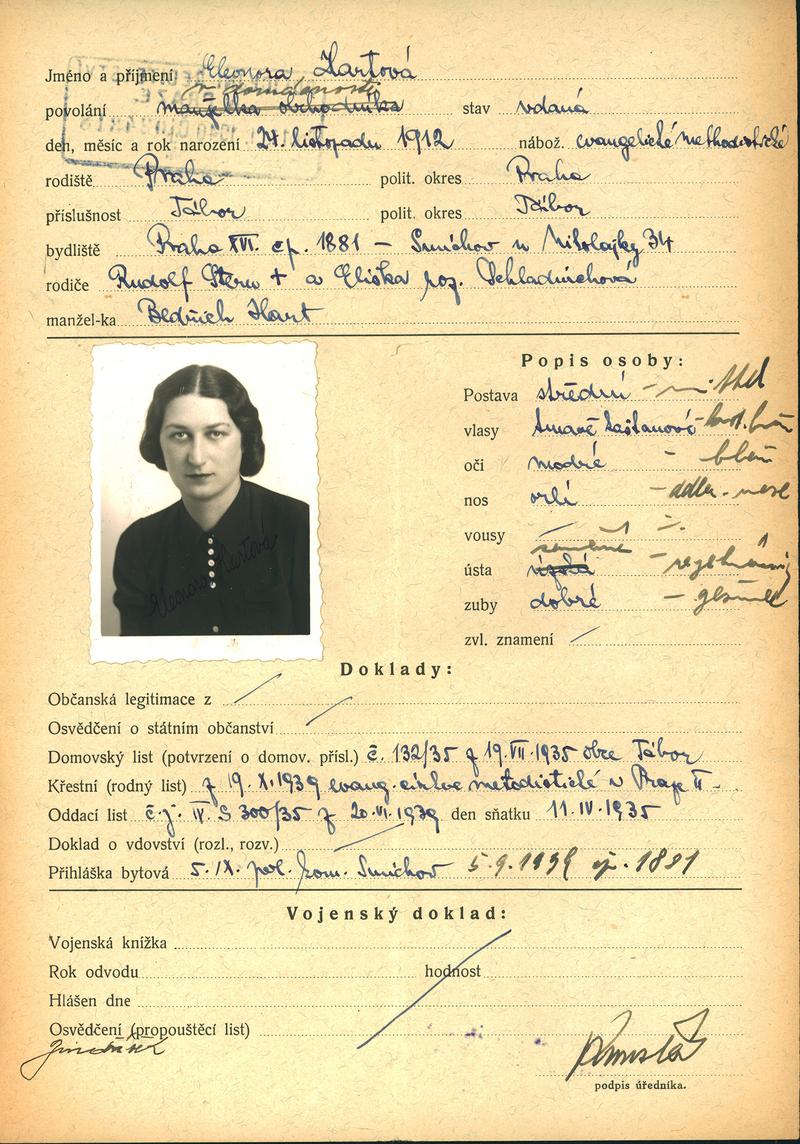 Jméno a příjmení Eleonora Hartová
povolání v domácnosti manželka obchodníka stav vdaná
den, měsíc a rok narození 24. listopadu 1912 nábož. evangelické methodistické
rodiště Praha polit. okres Praha
příslušnost Tábor polit. okres Tábor
bydliště Praha XVI. čp. 1881 – Smíchov u Mikolajky 34
rodiče Rudolf Stern + a Eliška roz. Schladnichová
manžel-ka Bedřich Hart
Popis osoby:
Postava střední – mittel
vlasy tmavě kaštanové
oči modré – blau
nos orlí – adler-nase
vousy
ústa souměrné úzká
zuby dobré – gesunde
zvl. znamení
Eleonora Hartová
Doklady:
Občanská legitimace z
Osvědčení o státním občanství
Domovský list (potvrzení o domov. přísl.) č. 132/35 z 19.VII.1935 obce Tábor
Křestní (rodný list) z 19.X.1939 evang. církve metodistické v Praze II.
Oddací list č.j. IV. S 300/35 z 20.VI.1939 den sňatku 11.IV.1935
Doklad o vdovství (rozl., rozv.)
Přihláška bytová 5.IX. pol. kom. Smíchov 5.9.1939 čp. 1881
Vojenský doklad:
Vojenská knížka
Rok odvodu hodnost
Hlášen dne
Osvědčení (propouštěcí list)
podpis úředníka.